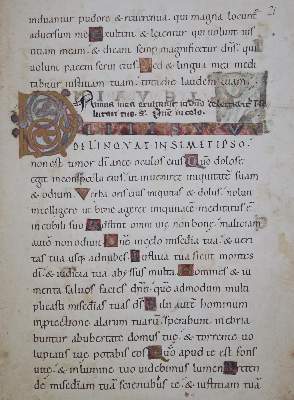 21
induantur pudore & reuerentia. qui magna locunt̄
aduersum me. Exultent & letentur qui uolunt ius
titiam meam. & dicant semp magnificetur dn̄s. qui
uolunt pacem serui eius. Sed & lingua mea medi
tabitur iustitiam tuam. tota die laudem tuam.
DELINQUAT IN SEMETIPSO.
non est timor dī ante oculos eius. Qūo dolose
egit inconspectu eius. ut inueniret iniquitatē suam
& odium. Verba oris eius iniquitas & dolus. noluit
intelligere ut bene ageret. iniquitatē meditatus ē
in cubili suo. Adstitit omni uie non bone. malitiam
autē non odiuit. Dn̄e in celo mis̄edia tua. & ueri
tas tua usq; ad nubes. Iustitia tua sicut montes
dī. & iudicia tua abyssus multa. Homines & iu
menta saluos facies dn̄e. quē admodum multi
plicasti mis̄edias tuas ds̄. Filii autē hominum
inprotectione alarum tuarū. sperabunt. inebria
buntur abubertate domus tue. & torrente uo
luptatis tue potabis eos. Qūo apud te est fons
uite. & inlumine tuo uidebimus lumen.
dn̄e mis̄ediam tuam scientibus te. & iustitiam tuā